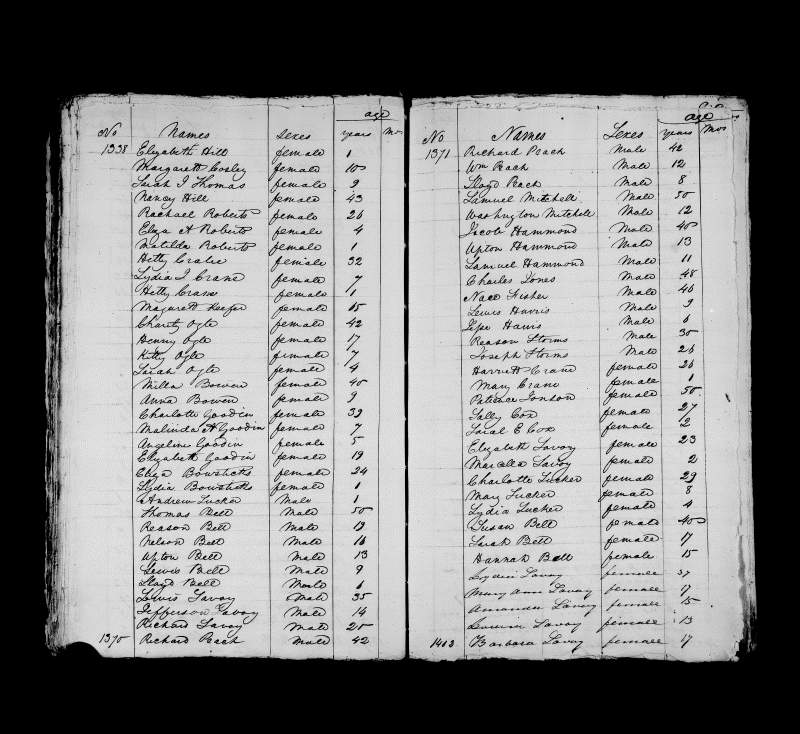 age
No Names Sexes years Mos
1338 Elizabeth Hill female 1
Margarett Cosley female 10
Sarah I Thomas female 9
Nancy Hill female 43
Rachael Roberts female 26
Eliza A Roberts female 4
Matilda Roberts female 1
Hetty Crane female 32
Lydia I Crane female 7
Hetty Crane female 1
Magarett Keefer female 15
Charity Ogle female 42
Henny Ogle female 17
Kitty Ogle female 7
Sarah Ogle female 4
Milla Bowen female 40
Anna Bowen female 9
Charlotte Goodin female 39
Malinda A Goodin female 7
Angeline Goodin female 5
Elizabeth Goodin female 19
Eliza Bowsticks female 24
Lydia Bowsticks female 1
Andrew Tucker Male 1
Thomas Bell Male 50
Reason Bell Male 19
Nelson Bell Male 16
Upton Bell Male 13
Lewis Bell Male 9
Lloyd Bell Male 1
Lewis Savoy Male 35
Jefferson Savoy Male 14
Richard Savoy Male 20
1370 Richard Peach Male 42
age
No Names Sexes years Mos
1371 Richard Peach Male 42
Wm Peach Male 12
Lloyd Peach Male 8
Samuel Mitchell Male 50
Washington Mitchell Male 12
Jacob Hammond Male 40
Upton Hammond Male 13
Samuel Hammond Male 11
Charles Jones Male 48
Nace Fisher Male 46
Lewis Harris Male 9
Jesse Harris Male 6
Reason Storms Male 30
Joseph Storms Male 26
Harriett Crane female 26
Mary Crane female 1
Patience Jonson female 50
Sally Cox female 27
Sarah E Cox female 2
Elizabeth Savoy female 23
Marcella Savoy female 2
Charlotte Tucker female 29
Mary Tucker female 8
Lydia Tucker female 4
Susan Bell female 40
Sarah Bell female 17
Hannah Bell female 15
Lydia Savoy female 37
Mary Ann Savoy female 17
Amanda Savoy female 15
Savoy female 13
1403 Barbara Savoy female 17